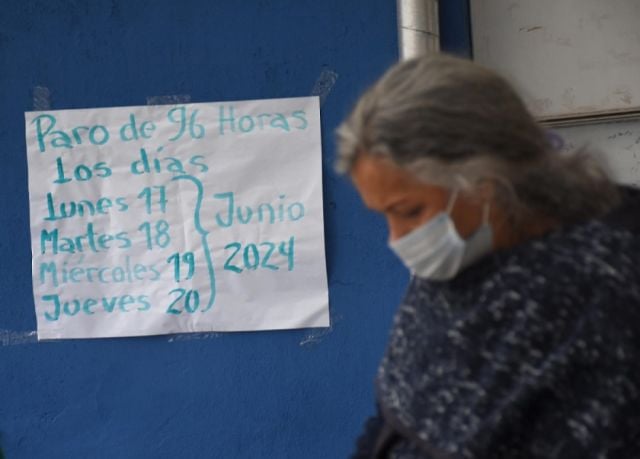 Paro de 96 Horas
Los días
Lunes 17
Martes 18
Miercoles 19
Jueves 20
Junio
2024